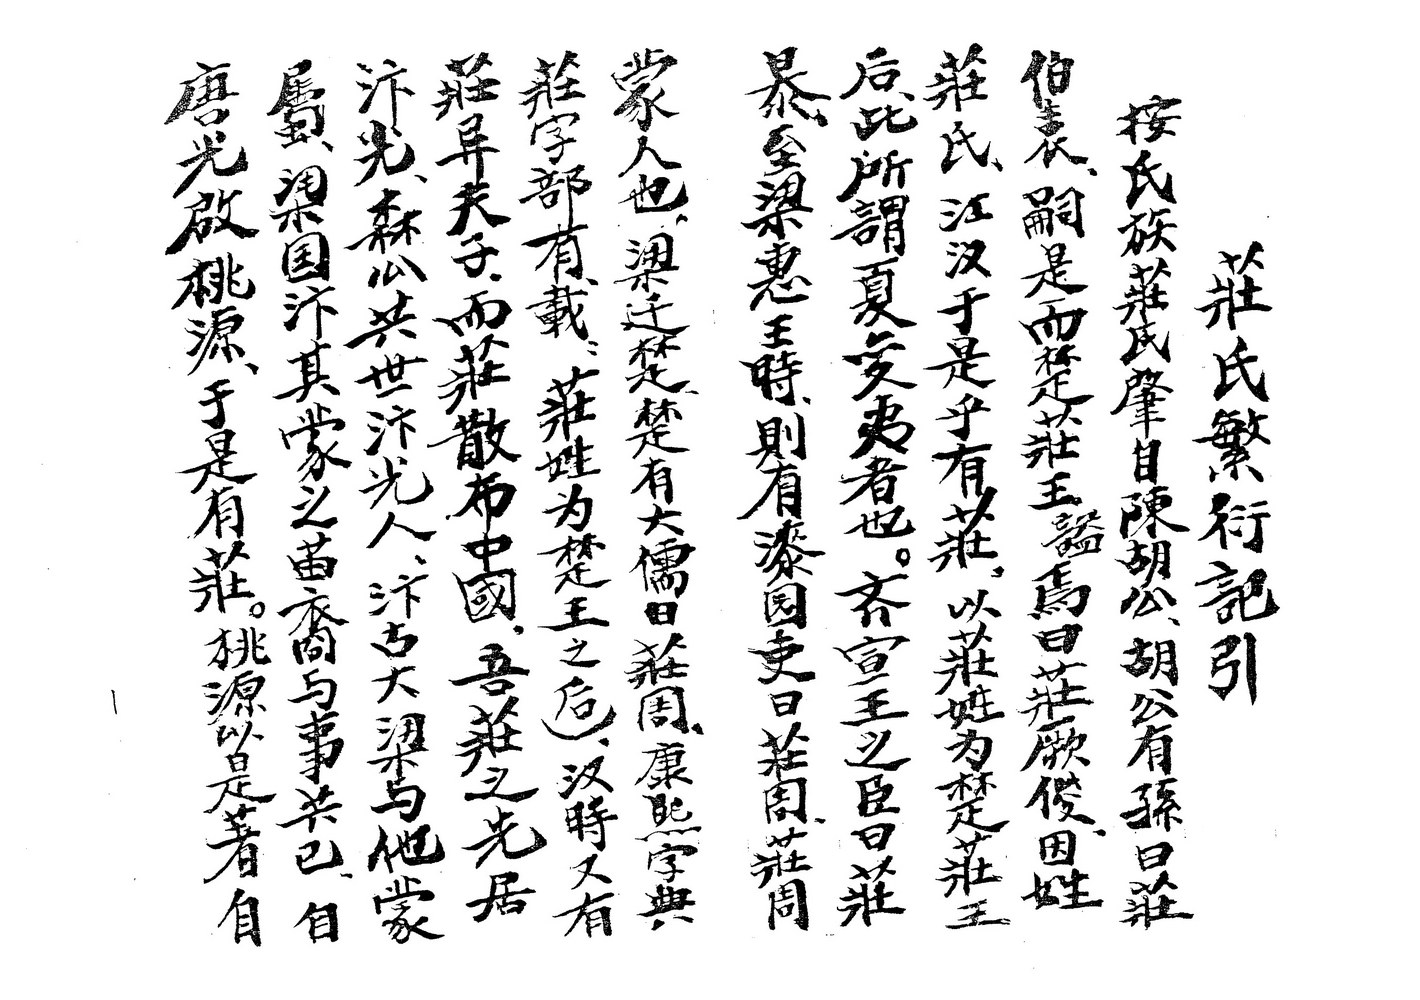 莊氏繁衍記引
按氏族莊氏肇自陳胡公、胡公有孫曰莊
伯表、嗣是而楚莊王諡焉曰莊厥後、因姓
莊氏、江汉于是乎有莊，以莊姓为楚莊王
后、此所謂夏变夷者也。齐宣王之臣曰莊
暴、至梁惠王時、則有漆园吏曰莊周、莊周
蒙人也，梁迁楚、楚有大儒曰莊周、康熙字典
莊字部有、載：莊姓为楚王之后、汉時又有
莊异夫子、而莊散布中國，吾莊之先居
汴光、森公共世汴光人、汴古大梁与他蒙
屬、梁国汴其蒙之苗裔与事共已、自
唐光啟桃源、于是有莊。桃源以是著自